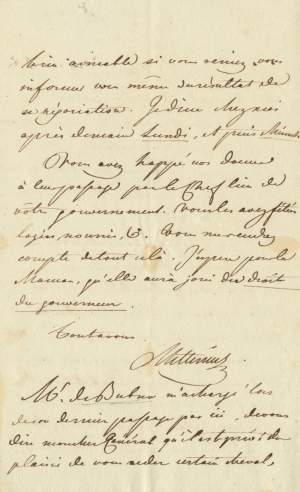 bien aimable si vous veniez vous
informer vous même du résultat de
sa négociation. Je dine
après demain lundi, et puis
Vous avez happé vos dames
à leur passage par le Chef lieu de
vôtre gouvernement. Vous les avez fêtées
logées, nourries, &. Vous me rendrez
compte de tout celà. J'espère pour la
Maman, qu'elle aura joui du droit
du gouverneur.
Tout à vous
Metternich
Mr. de m'a chargé lors
de son dernier passage par ici, de vous
dire mon cher Général qu'il est prêt
plaisir de vous céder certain cheval,